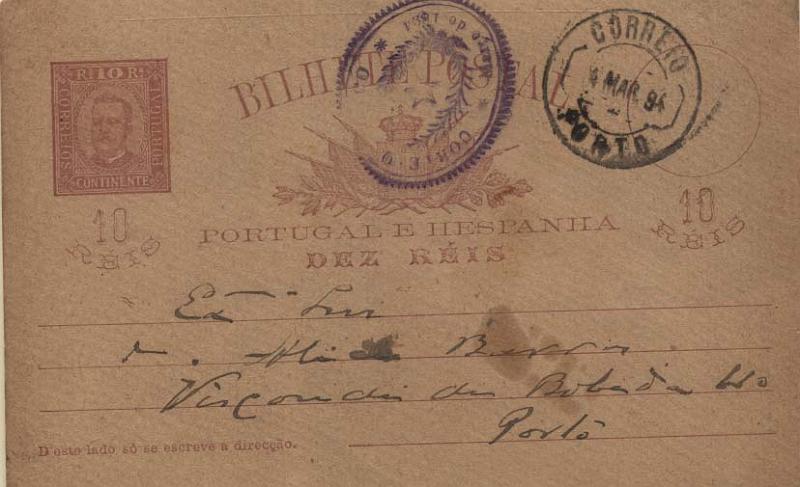 10 R.
CORREIOS
PORTUGAL
CONTINENTE
BILHETE POSTAL
Março de 1894
CORREIO
CORREIO
4 MAR. 94
PORTO
10
RÉIS
10
RÉIS
PORTUGAL E HESPANHA
DEZ RÉIS
Exª
Barros
Visconde de Bobeda
Porto
D'este lado só se escreve a direcção.